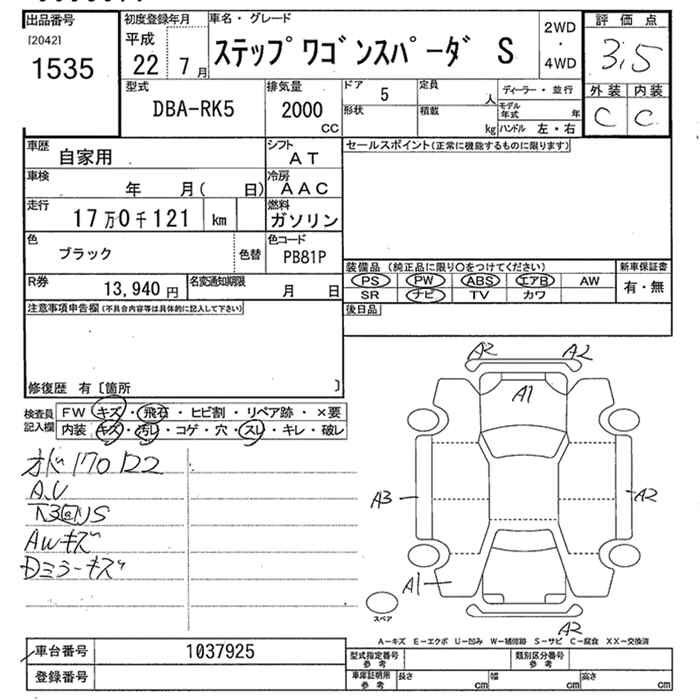 出品番号
[2042]
1535
初度登録年月
平成
22 7月
車名・グレード
ステップワゴンスパーダ S
2WD
・
4WD
評価点
3.5
外装 内装
C C
型式
DBA-RK5
排気量
2000
CC
ドア 5
形状
定員
人
積載
kg
ディーラー・並行
モデル年式 年
ハンドル 左・右
車歴
自家用
シフト
AT
車検
年 月( 日)
冷房
AAC
走行
17万0千121 km
燃料
ガソリン
色
ブラック
色替
色コード
PB81P
R券
13,940 円
名変通知期限
月 日
セールスポイント(正常に機能するものに限ります)
装備品 (純正品に限り○をつけてください)
PS PW ABS エアB AW
SR ナビ TV カワ
新車保証書
有・無
後日品
注意事項申告欄(不具合内容等は具体的に記入して下さい)
修復歴 有〔箇所 〕
検査員記入欄
FW キズ・飛石・ヒビ割・リペア跡・×要
内装 キズ・汚レ・コゲ・穴・スレ・キレ・破レ
オド170122
A.U
AWキズ
Dミラーキズ
A2 A2
A1
A3 A2
A1
A2
スペア
A−キズ E−エクボ U−凹み W−補修跡 S−サビ C−腐食 XX−交換済
車台番号
1037925
登録番号
型式指定番号
参考
類別区分番号
参考
車庫証明用
参考
長さ cm
幅 cm
高さ cm